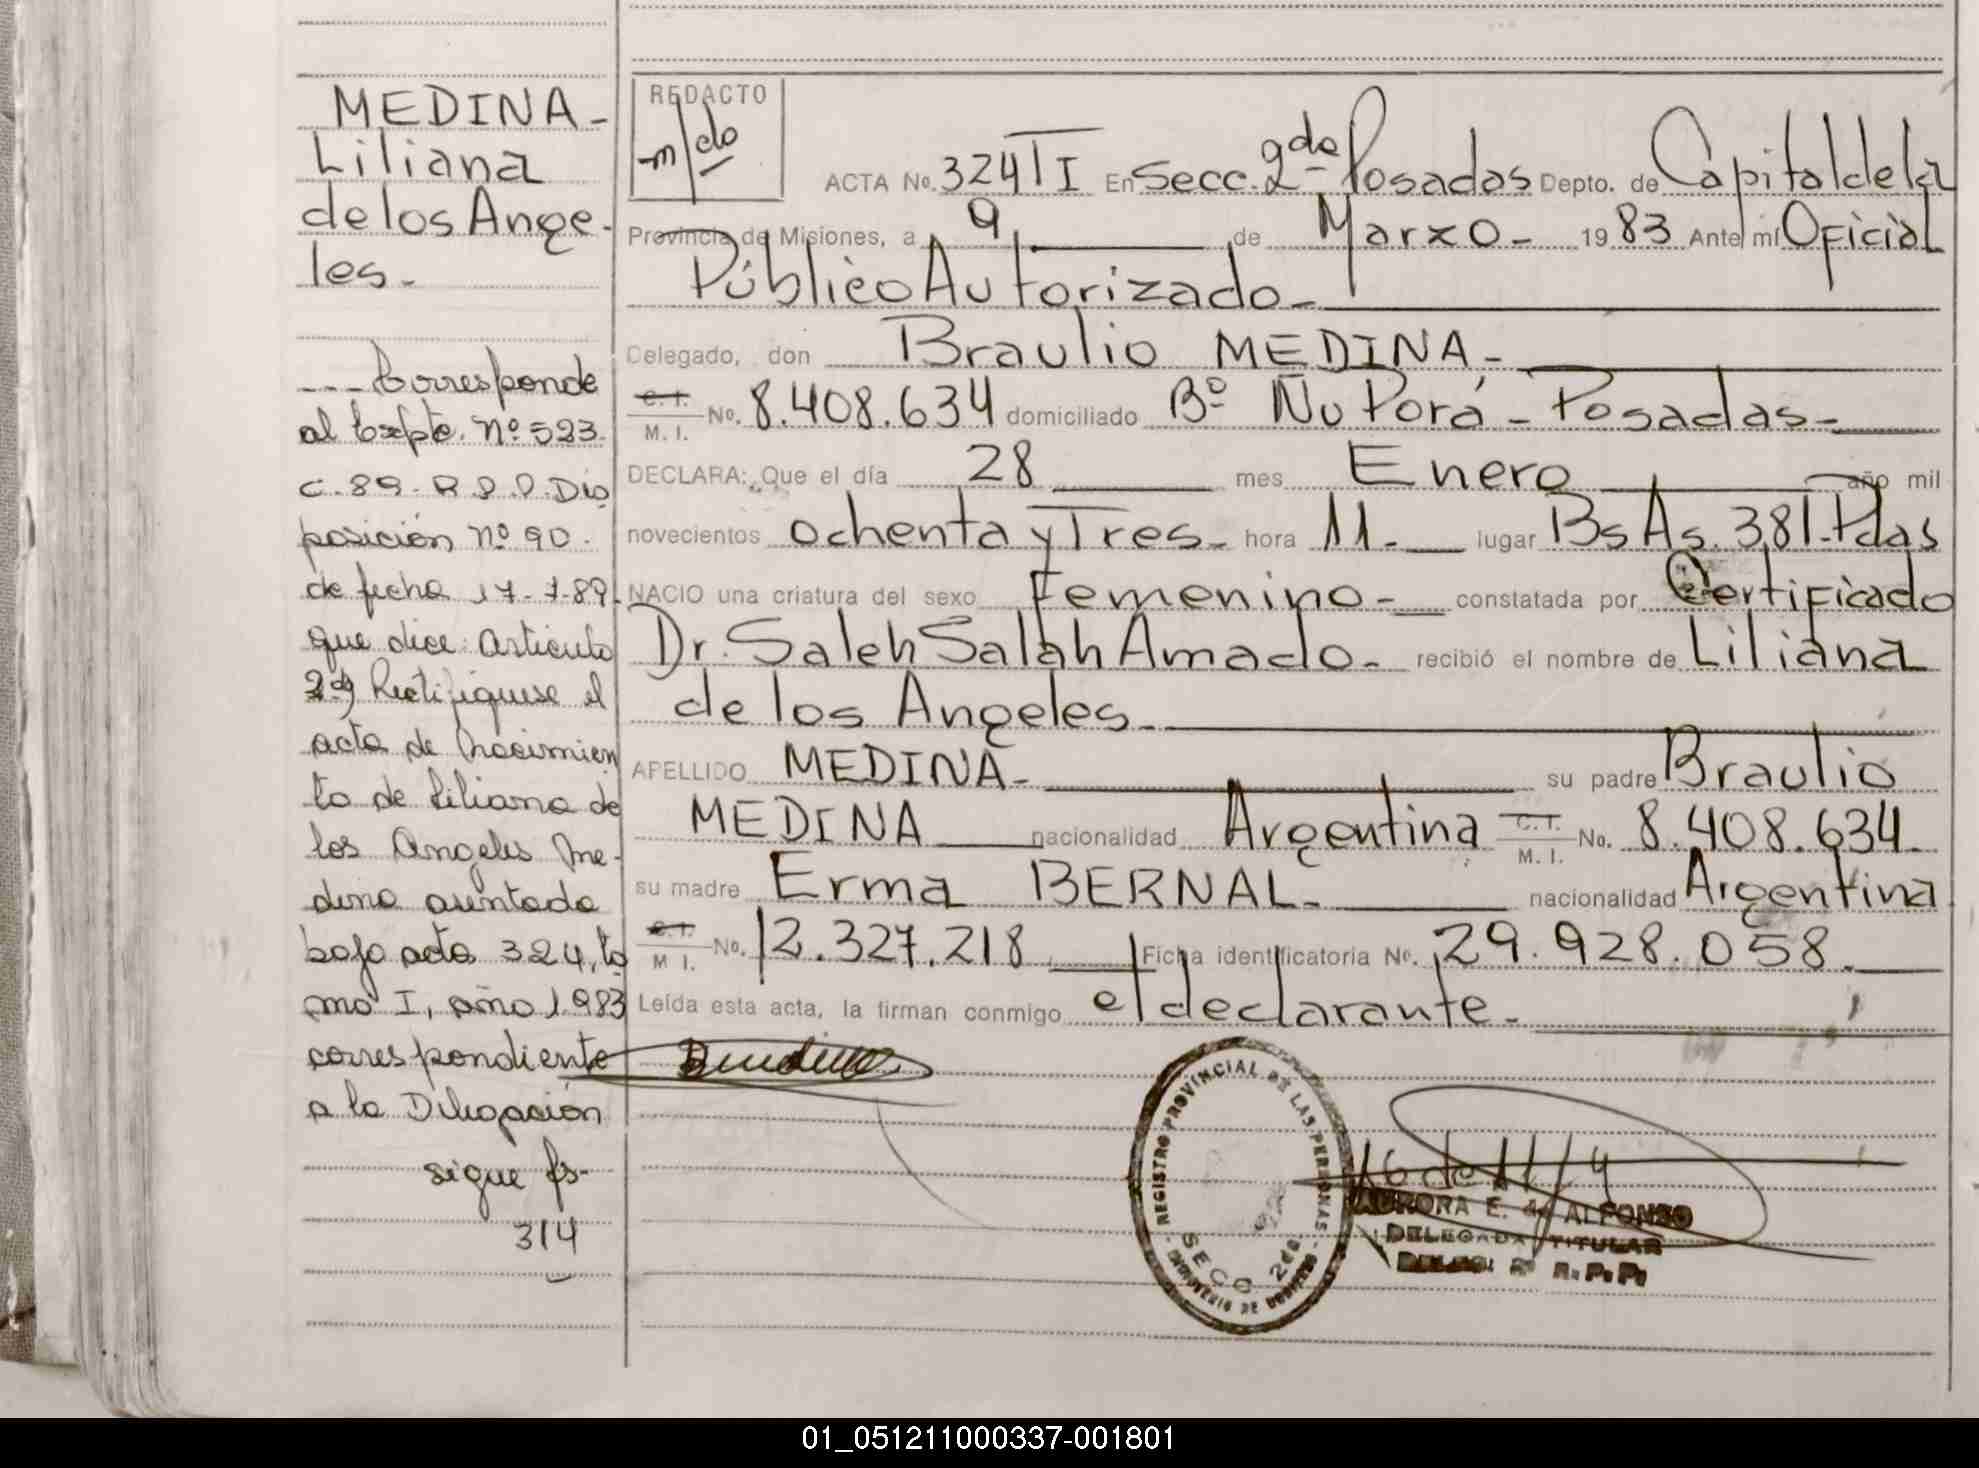 MEDINA-
Liliana
de los Ange-
les.-
--- Corresponde
al Expte. Nº 523.
C. 89. R.P.P. Dis
posición nº 90.
de fecha 17-7-89.
que dice: Articulo
2º) Rectifiquese el
acta de Nacimien
to de Liliana de
los Angeles Me-
dina asentada
bajo acta 324, to
mo I, año 1.983
correspondiente
a la Delegación
sigue fs-
314
REDACTO
m/do
ACTA No. 324 T I En Secc. 2da Posadas Depto. de Capital de la
Provincia de Misiones, a 9 de Marzo- 1983 Ante mí Oficial
Público Autorizado-
Delegado, don Braulio MEDINA-
C. I. / M. I. No. 8.408.634 domiciliado Bº Ñu Porá - Posadas-
DECLARA: Que el día 28 mes Enero año mil
novecientos ochenta y Tres- hora 11.- lugar Bs As. 381-Pdas
NACIO una criatura del sexo Femenino- constatada por Certificado
Dr. Saleh Salah Amado- recibió el nombre de Liliana
de los Angeles-
APELLIDO MEDINA- su padre Braulio
MEDINA nacionalidad Argentina C. I. / M. I. No. 8.408.634.
su madre Erma BERNAL- nacionalidad Argentina
C. I. / M. I. No. 12.327.218 Ficha identificatoria No. 29.928.058.
Leída esta acta, la firman conmigo el declarante-
REGISTRO PROVINCIAL DE LAS PERSONAS
SECC 2da
AURORA E. de ALFONSO
DELEGADA TITULAR
R.P.P.
01_051211000337-001801